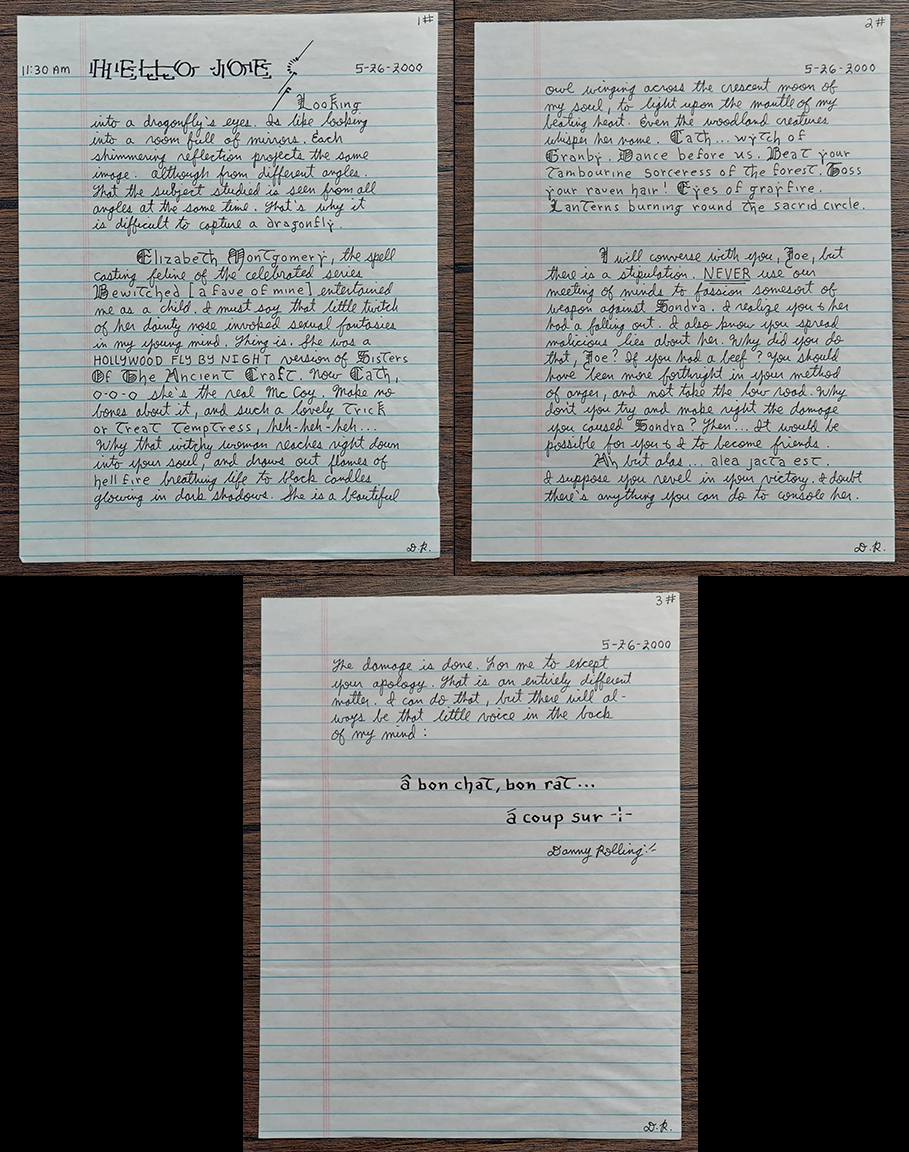 1#
11:30 AM HELLO JOE 5-26-2000
Looking
into a dragonfly's eyes. Is like looking
into a room full of mirrors. Each
shimmering reflection projects the same
image. although from different angles.
That the subject studied is seen from all
angles at the same time. That's why it
is difficult to capture a dragonfly.
Elizabeth Montgomery, the spell
casting feline of the celebrated series
Bewitched [a fave of mine] entertained
me as a child. I must say that little twitch
of her dainty nose invoked sexual fantasies
in my young mind. Thing is. She was a
HOLLYWOOD FLY BY NIGHT version of Sisters
Of The Ancient Craft. Now Cath,
o-o-o she's the real Mc Coy. Make no
bones about it, and such a lovely Trick
or Treat Temptress, heh-heh-heh...
Why that witchy woman reaches right down
into your soul, and draws out flames of
hell fire breathing life to black candles
glowing in dark shadows. She is a beautiful
D.R.
2#
5-26-2000
owl winging across the crescent moon of
my soul, to light upon the mantle of my
beating heart. Even the woodland creatures
whisper her name. Cath... wytch of
Granby. Dance before us. Beat your
Tambourine sorceress of the forest. Toss
your raven hair! Eyes of gray fire.
Lanterns burning round the sacrid circle.
I will converse with you, Joe, but
there is a stipulation. NEVER use our
meeting of minds to fassion somesort of
weapon against Sondra. I realize you & her
had a falling out. I also know you spread
malicious lies about her. Why did you do
that, Joe? If you had a beef? You should
have been more forthright in your method
of anger, and not take the low road. Why
don't you try and make right the damage
you caused Sondra? Then... It would be
possible for you & I to become friends.
Ah but alas... alea jacta est.
I suppose you revel in your victory. I doubt
there's anything you can do to console her.
D.R.
3#
5-26-2000
The damage is done. For me to except
your apology. That is an entirely different
matter. I can do that, but there will al-
ways be that little voice in the back
of my mind:
â bon chat, bon rat...
á coup sur
Danny Rolling
D.R.